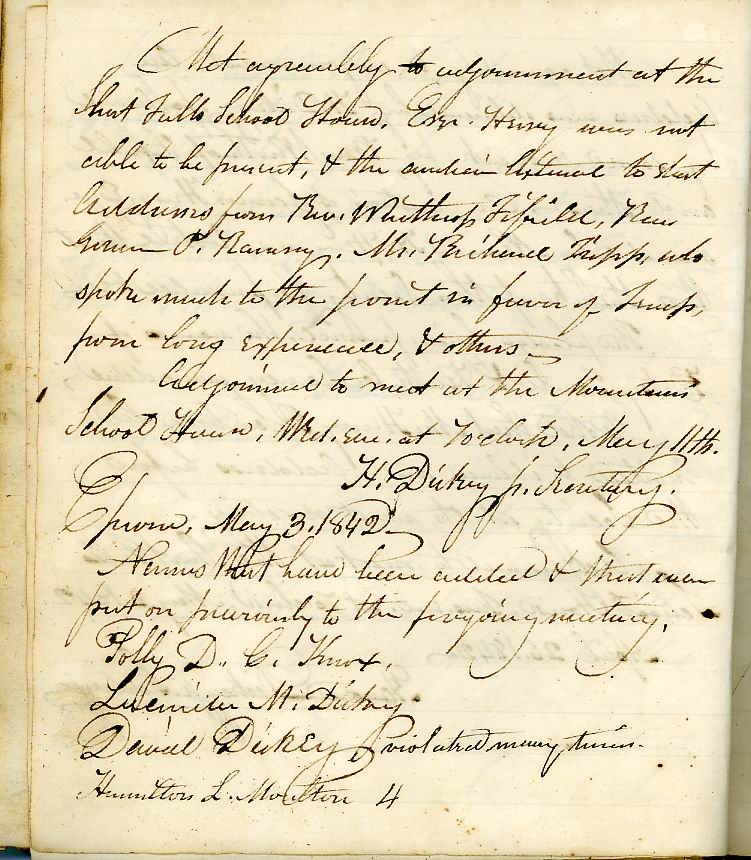 Met agreeably to adjournment at the
Short Falls School House. Esqr. Henry was not
able to be present, & the audience listened to short
Addresses from Rev. Winthrop Fifield, Rev.
P. Ramsey, Mr. Richard Tripp, who
spoke much to the point in favor of Temp.
from long experience, & others
Adjourned to meet at the Mountain
School House, Wed. eve. at 7 o'clock, May 11th.
H. Dickey jr. Secretary.
Epsom, May 3. 1842
Names that have been added & that were
put on previously to the foregoing meeting.
Polly D. C. Knox,
M. Dickey
David Dickey violated many times.
Hamilton L. Moulton 4